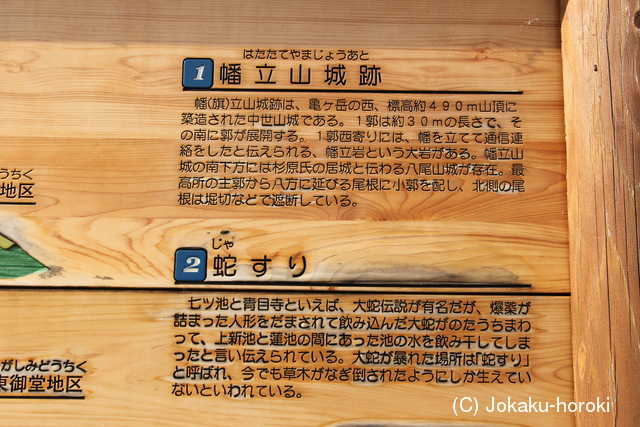 はたたてやまじょうあと
1 幡立山城跡
幡(旗)立山城跡は、亀ヶ岳の西、標高約490m山頂に
築造された中世山城である。1郭は約30mの長さで、そ
の南に郭が展開する。1郭西寄りには、幡を立てて通信連
絡をしたと伝えられる、幡立岩という大岩がある。幡立山
城の南下方には杉原氏の居城と伝わる八尾山城が存在。最
高所の主郭から八方に延びる尾根に小郭を配し、北側の尾
根は堀切などで遮断している。
うち
地区
じゃ
2 蛇すり
七ツ池と青目寺といえば、大蛇伝説が有名だが、爆薬が
詰まった人形をだまされて飲み込んだ大蛇がのたうちまわ
って、上新池と蓮池の間にあった池の水を飲み干してしま
ったと言い伝えられている。大蛇が暴れた場所は「蛇すり」
と呼ばれ、今でも草木がなぎ倒されたようにしか生えてい
ないといわれている。
がしみどうちく
東御堂地区
(C) Jokaku-horoki